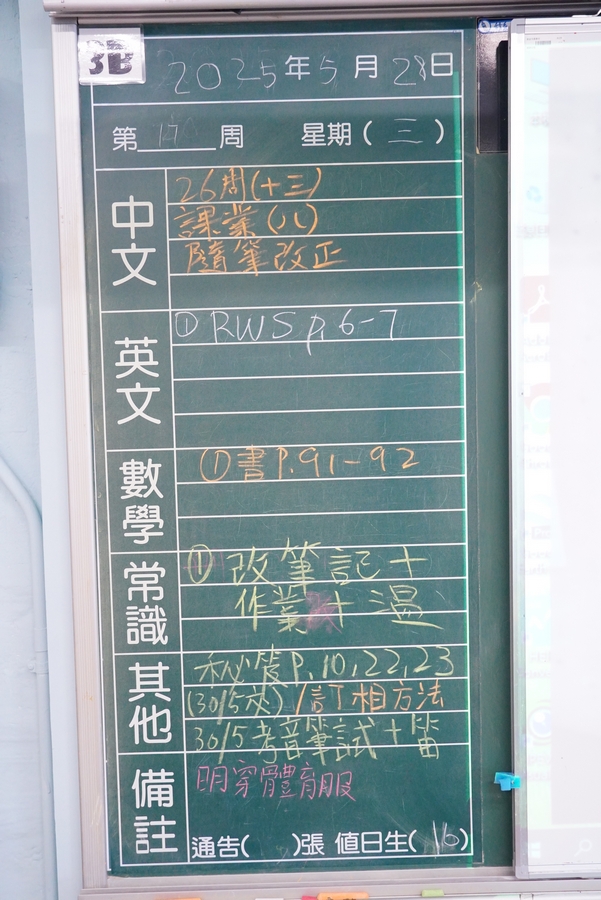 3B
2025年5月28日
第17周 星期(三)
中文
26周(十三)
課業(八)
隨筆改正
英文
① RWS p.6-7
數學
① 書P.91-92
常識
① 改筆記+
作業+溫
其他
P.10,22,23
(30/5交)/訂相方法
30/5考音筆試+笛
備註
明穿體育服
通告( )張 值日生(16)